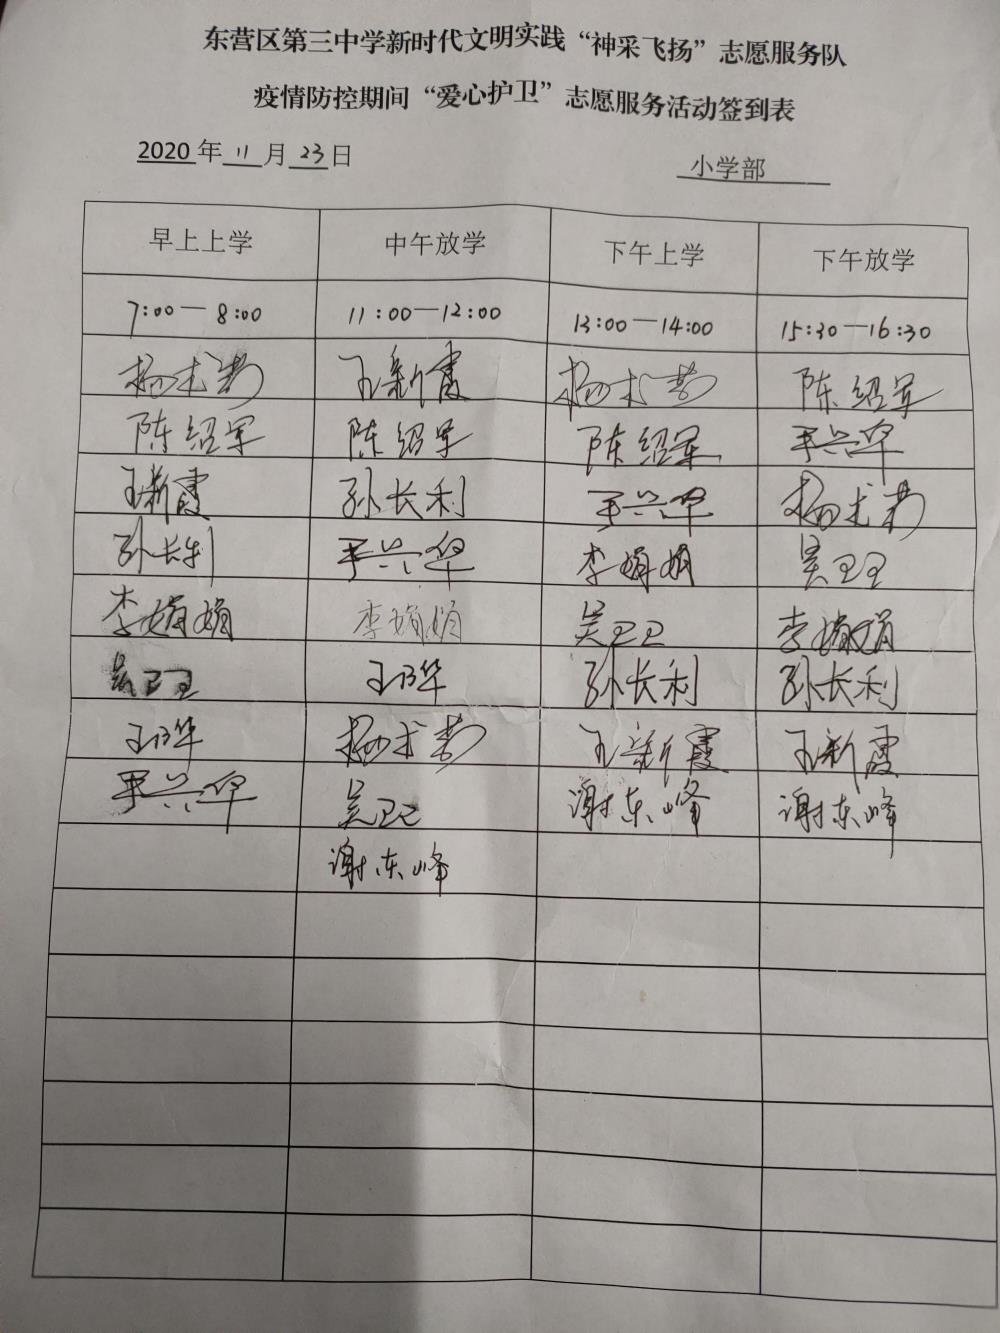 东营区第三中学新时代文明实践“神采飞扬”志愿服务队
疫情防控期间“爱心护卫”志愿服务活动签到表
2020 年 11 月 23 日 小学部
早上上学 中午放学 下午上学 下午放学
7:00—8:00 11:00—12:00 13:00—14:00 15:30—16:30
王新霞 陈绍军
陈绍军 陈绍军 陈绍军 兴华
王新霞 孙长利 兴华
孙长利 兴华 李娟娟 吴卫卫
李娟娟 李娟娟 吴卫卫 李娟娟
吴卫卫 王乃华 孙长利 孙长利
王乃华 王新霞 王新霞
兴华 吴卫卫 谢东峰 谢东峰
谢东峰